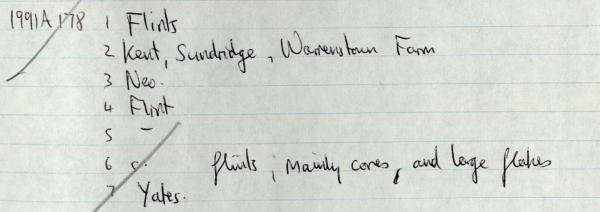 1991A 178 1 Flints
2 Kent, Sundridge, Warrenstown Farm
3 Neo.
4 Flint
5 -
6 c. flints, mainly cores, and large flakes
7 Yates.